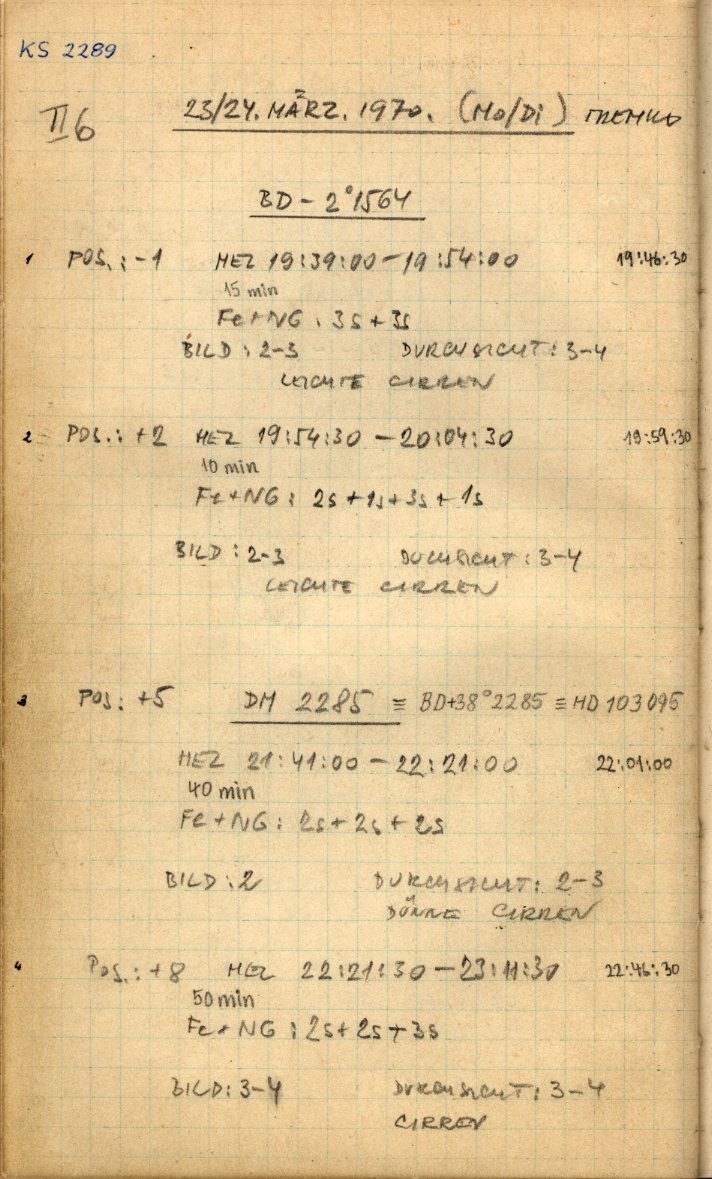 KS 2289
II6 23/24. MÄRZ. 1970. (Mo/Di)
BD - 2°1564
1 POS.: -1 MEZ 19:39:00 - 19:54:00 19:46:30
15 min
Fe+NG: 3s + 3s
BILD: 2-3 DURCHSICHT: 3-4
LEICHTE CIRREN
2 POS.: +2 MEZ 19:54:30 - 20:04:30 19:59:30
10 min
Fe+NG: 2s + 1s + 3s + 1s
BILD: 2-3 DUCHSICHT: 3-4
LEICHTE CIRREN
3 POS: +5 DM 2285 ≡ BD+38°2285 ≡ HD 103095
MEZ 21:41:00 - 22:21:00 22:01:00
40 min
Fe+NG: 2s + 2s + 2s
BILD: 2 DURCHSICHT: 2-3
DÜNNE CIRREN
4 Pos.: +8 MEZ 22:21:30 - 23:11:30 22:46:30
50 min
Fe+NG: 2s + 2s + 3s
BILD: 3-4 DURCHSICHT: 3-4
CIRREN